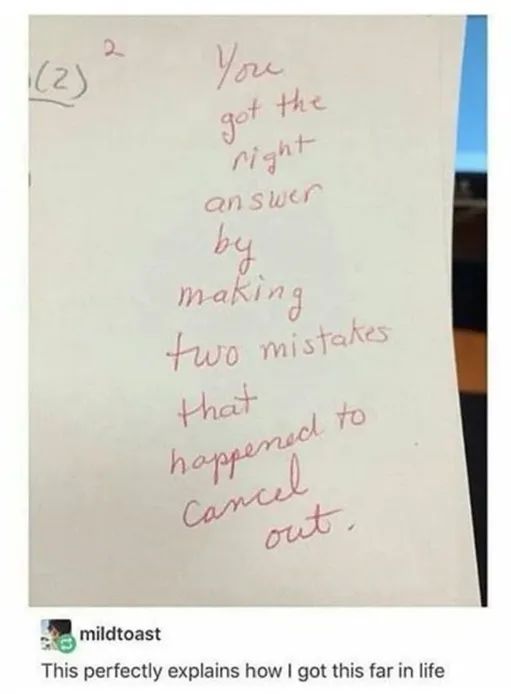 2
(2)
You
got the
right
answer
by
making
two mistakes
that
happened to
cancel
out.
mildtoast
This perfectly explains how I got this far in life